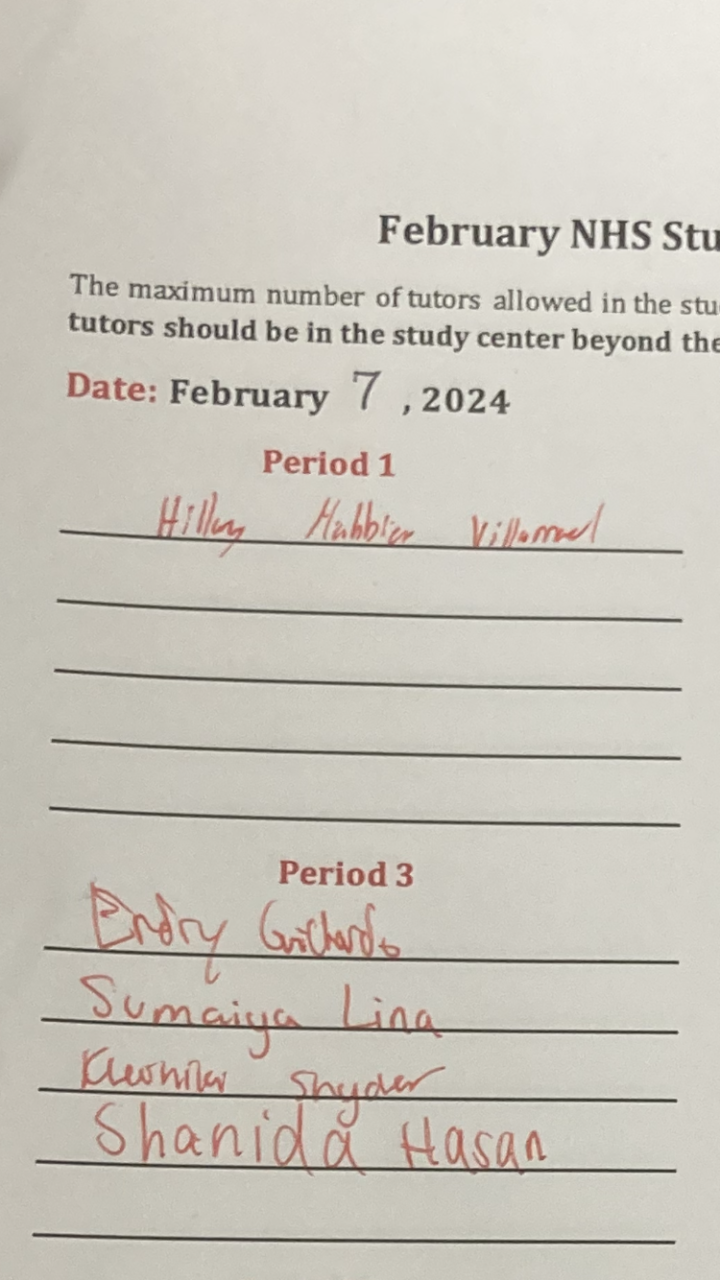 February NHS Stu
The maximum number of tutors allowed in the stu
tutors should be in the study center beyond the
Date: February 7, 2024
Period 1
Period 3
Endry Guichardo
Sumaiya Lina
Snyder
Shanida Hasan